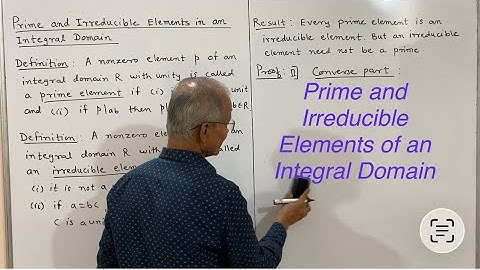 Prime and Irreducible Elements in an
Integral Domain
Definition: A nonzero element p of an
integral domain R with unity is called
a prime element if (i) unit
and (ii) if p|ab then p| b∈R
Definition: A nonzero ele an
integral domain R with lled
an irreducible elem
(i) it is not a
(ii) if a=bc
c is a uni
Result: Every prime element is an
irreducible element. But an irreducible
element need not be a prime.
Proof: Converse part:
Prime and
Irreducible
Elements of an
Integral Domain